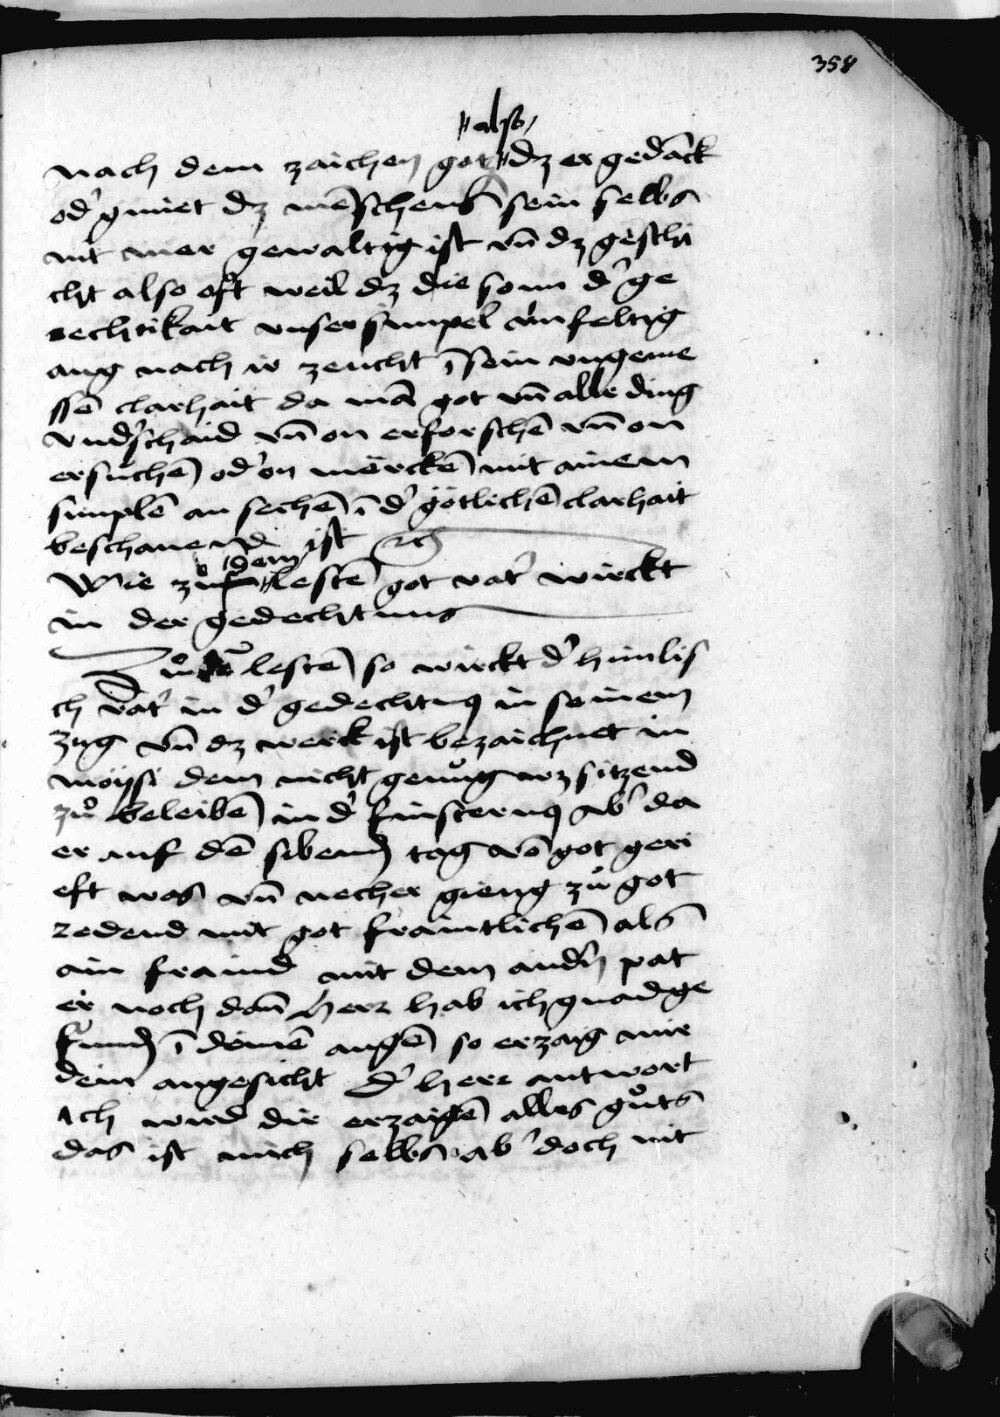 358
also
nach dem zaichen got dz er gedāck
od' gmiet dz mēschens sein selbs
nit mer gewaltig ist vn̄ dz geschi
cht also oft weil dz die sonn d' ge
rechtikait vnser simpel ainfeltig
aug nach ir zeucht ī sein vngeme
ssē clarhait da mā got vn̄ alle ding
vnd'schaid vn̄ on erforschē vn̄ on
ersuchē od' on mercken mit ainem
simplē an sechē ī d' götlichē clarhait
beschauend ist
Wie zů dem lestē got vat' wirckt
in der gedechtnus
Zů lestē so wirckt d' himlis
ch vat' in d' gedechtnus in seinem
zug vn̄ dz werck ist bezaichnet in
moysi dem nicht genůg waz sitzend
zů beleibē in d' finsternus ab' da
er auf dē sibenden tag vō got geri
eft was vn̄ necher gieng zů got
redend mit got fraintlichē als
ain fraind mit dem andn̄ pat
er noch dan̄ herr hab ich gnad ge
funden ī deinē augē so erzaig mir
dein angesicht D' herr antwort
Ich wird dir erzaigē alles gůts
das ist mich selbs ab' doch nit